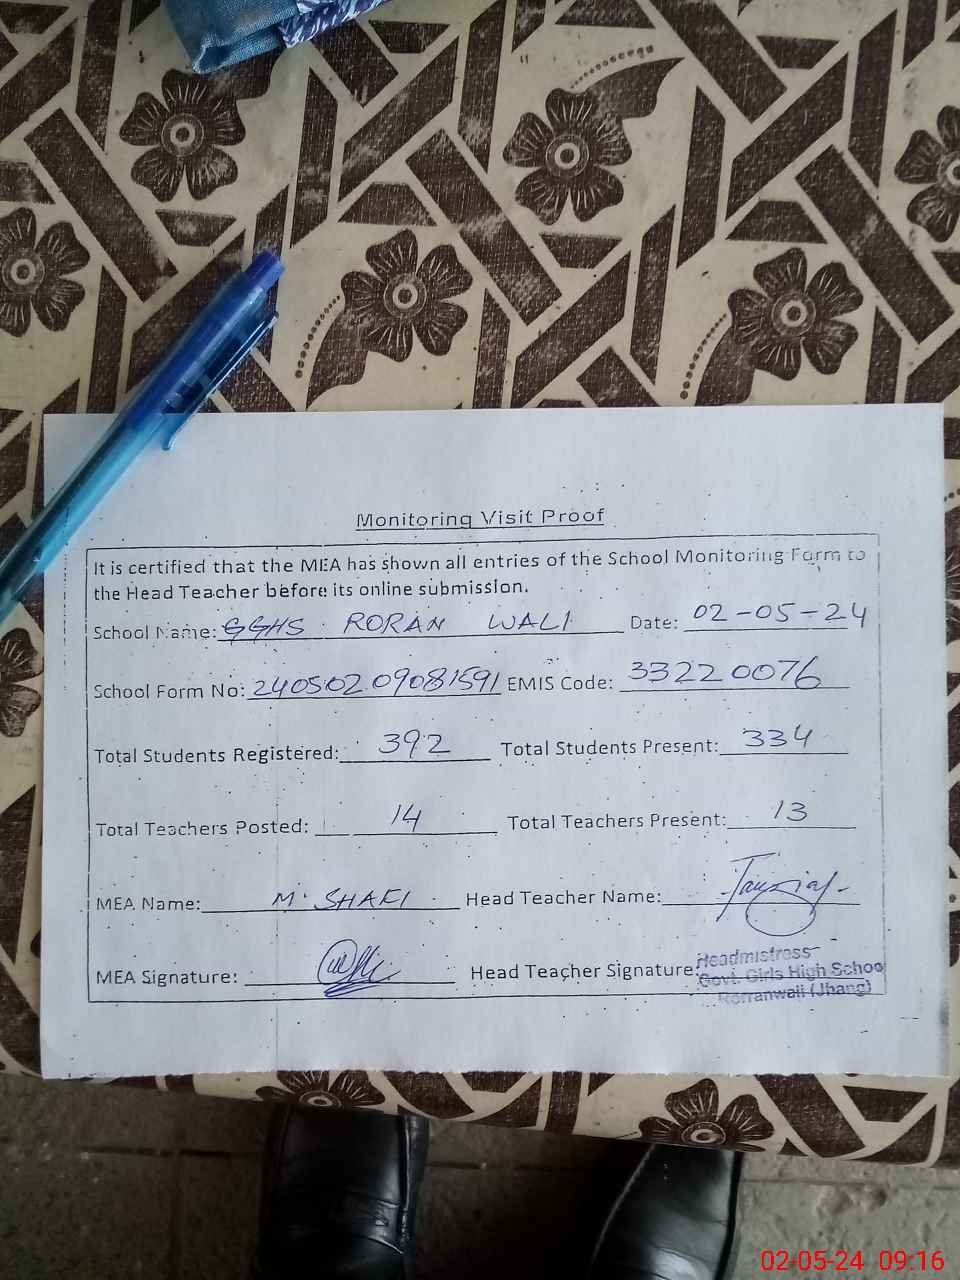 Monitoring Visit Proof
It is certified that the MEA has shown all entries of the School Monitoring Form to
the Head Teacher before its online submission.
School Name: GGHS RORAN WALI Date: 02-05-24
School Form No: 24050209081591 EMIS Code: 33220076
Total Students Registered: 392 Total Students Present: 334
Total Teachers Posted: 14 Total Teachers Present: 13
MEA Name: M. SHAFI Head Teacher Name:
MEA Signature: Head Teacher Signature:
Headmistress
Govt. Girls High School
Rorranwali (Jhang)
02-05-24 09:16